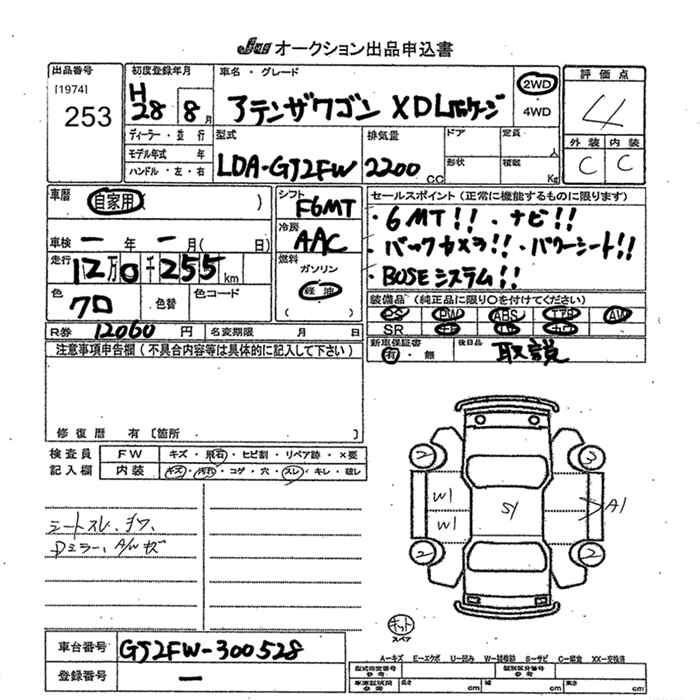 JU オークション出品申込書
出品番号
[1974]
253
初度登録年月
H
28 8月
車名・グレード
アテンザワゴン XDLパッケージ
2WD
・
4WD
評価点
4
外装 内装
C C
ディーラー・並行
モデル年式 年
ハンドル・左・右
型式
LDA-GJ2FW
排気量
2200 CC
ドア
形状
定員
人
積載
Kg
車歴
自家用 ( )
車検 ー 年 ー 月( 日)
走行
12万0千255km
色
クロ
色替
色コード
R券 12060 円
名変期限 月 日
シフト
F6MT
冷房
AAC
燃料
ガソリン
軽油
( )
セールスポイント(正常に機能するものに限ります)
・6MT!! ・ナビ!!
・バックカメラ!! ・パワーシート!!
・BOSEシステム!!
装備品(純正品に限り○を付けてください)
PS PW ABS エアB AW
SR カワ TV ナビ
新車保証書
有・無
後日品
取説
注意事項申告欄(不具合内容等は具体的に記入して下さい)
修復歴 有〔箇所
検査員
記入欄
FW
キズ・飛石・ヒビ割・リペア跡・×要
内装
キズ・汚れ・コゲ・穴・スレ・キレ・破レ
シートスレ、シワ、
Dミラー、A/Wキズ
2
3
W1
W1
S1
A1
2
2
キット
スペア
A-キズ E-エクボ U-凹み W-補修跡 S-サビ C-腐食 XX-交換済
車台番号
GJ2FW-300528
登録番号
ー
型式指定番号
参考
類別区分番号
参考
車庫証明用
参考
長さ cm
幅 cm
高さ cm